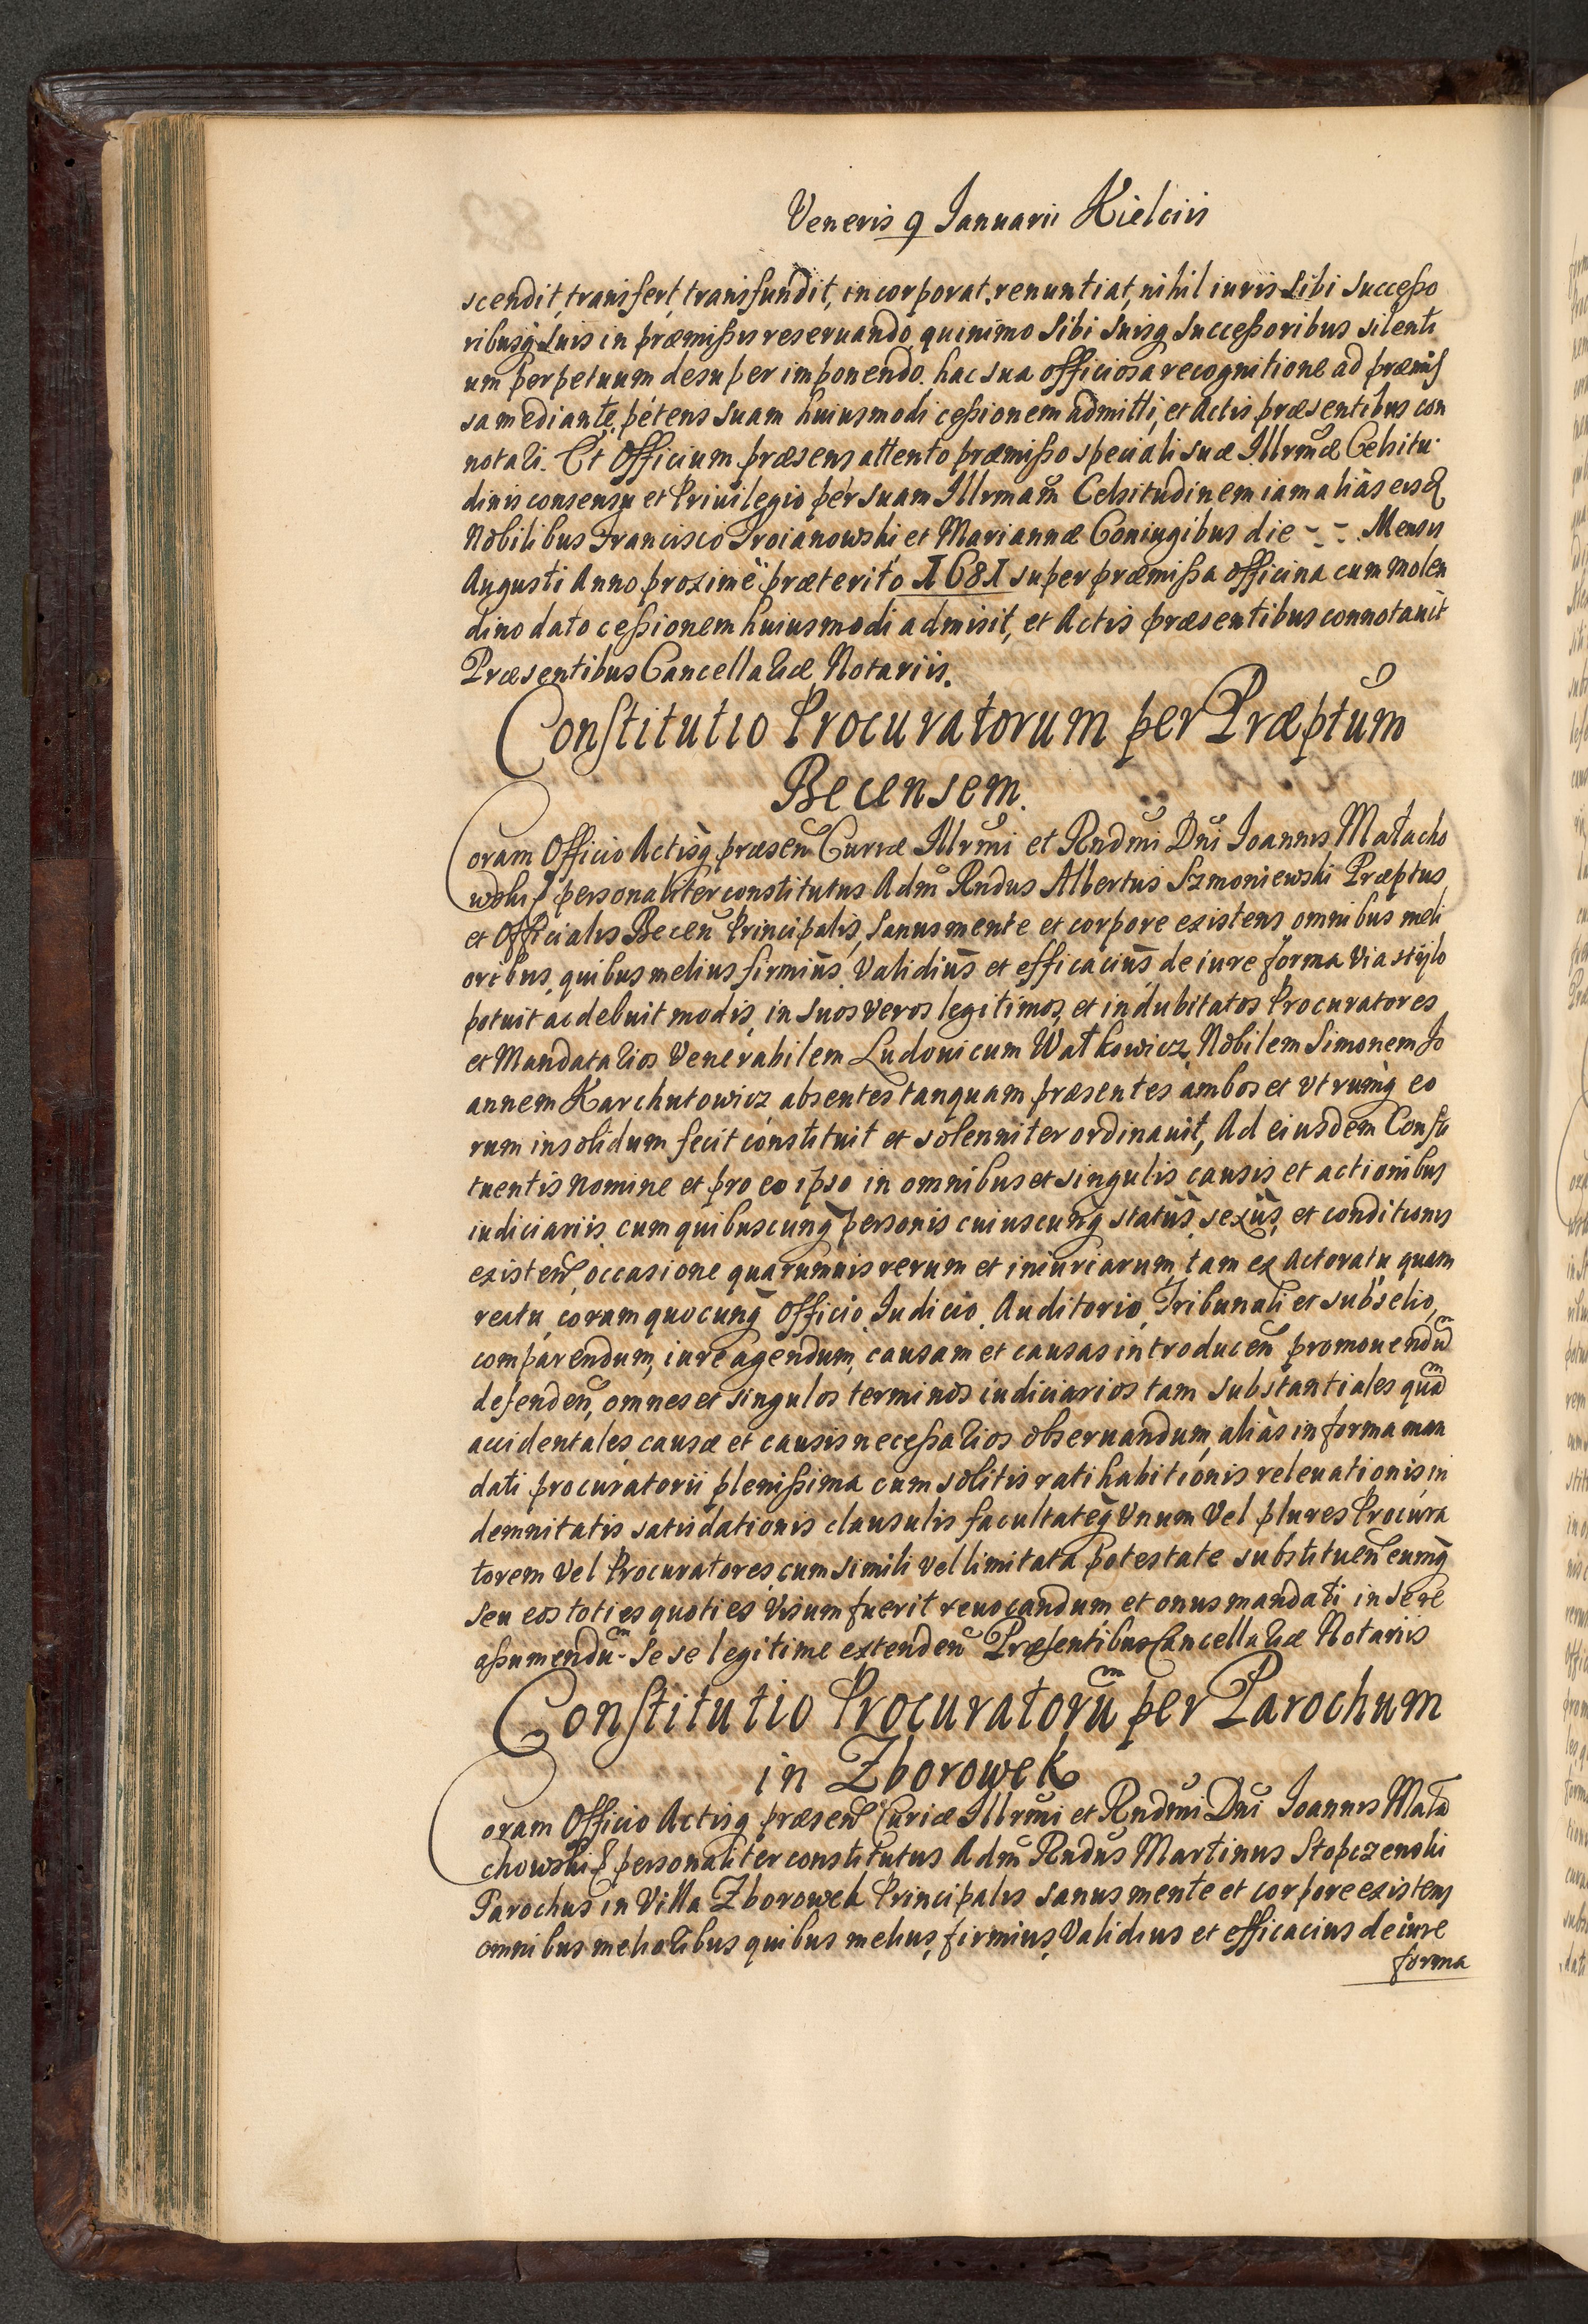 Veneris 9 Ianuarii Kielciis
scendit, transfert, transfundit, incorporat, renuntiat, nihil iuris sibi Successo
ribusq̃ suis in præmissis reseruando, quinimo sibi suisq̃ Successoribus silenti
um perpetuum desuper imponendo, hac sua officiosa recognitione ad præmis
sa mediante, petens suam huiusmodi cessionem admitti, et Actis præsentibus con
notari. Et Officium præsens attento præmisso speciali suæ Illrmæ Celsitu
dinis consensu et Priuilegio per suam Illrmam Celsitudinem iam aliàs eisd
Nobilibus Francisco Troianowski et Mariannæ Coniugibus die - - Mensis
Augusti Anno proximè præterito 1681 super præmissa officina cum molen
dino dato cessionem huiusmodi admisit, et Actis præsentibus connotauit
Præsentibus Cancellariæ Notariis.
Constitutio Procuratorum per Præptum
Becensem.
Coram Officio Actisq̃ præsen Curiæ Illrmi et Rndmi Dni Ioannis Małacho
wski personaliter constitutus Adm Rndus Albertus Szmoniewski Præptus
et Officialis Becen Principalis, sanus mente et corpore existens omnibus meli
oribus, quibus melius firmiùs, validiùs et efficaciùs de iure forma via stylo
potuit ac debuit modis, in suos veros legitimos, et indubitatos Procuratores
et Mandatarios Venerabilem Ludouicum Wałkowicz, Nobilem Simonem Jo
annem Karchutowicz absentes tanquam præsentes ambos et vtrumq̃ eo
rum insolidum fecit constituit et solenniter ordinauit, Ad eiusdem Consti
tuentis nomine et pro eo ipso in omnibus et singulis causis et actionibus
iudiciariis cum quibuscunq̃ personis cuiuscunq̃ statûs, sexûs, et conditionis
existen, occasione quarumuis rerum et iniuriarum, tam ex Actoratu quam
reatu, coram quocunq̃ Officio, Iudicio, Auditorio, Tribunali et subselio,
comparendum, iure agendum, causam et causas introducen promouendum
defenden, omnes et singulos terminos iudiciarios tam substantiales quam
accidentales causæ et causis necessarios obseruandum, aliàs in forma man
dati procuratorii plenissima cum solitis ratihabitionis releuationis in
demnitatis satisdationis clausulis facultateq̃ vnum vel plures Procura
torem vel Procuratores, cum simili vel limitata potestate substituen eumq̃
seu eos toties quoties visum fuerit reuocandum et onus mandati in se re
assumendum. se se legitime extenden Præsentibus Cancellariæ Notariis
Constitutio Procuratorum per Parochum
in Zborowek
Coram Officio Actisq̃ præsen Curiæ Illrmi et Rndmi Dni Ioannis Mała
chowski personaliter constitutus Adm Rndus Martinus Stopczenski
Parochus in Villa Zborowek Principalis sanus mente et corpore existens
omnibus melioribus quibus melius, firmius, validius et efficacius de iure
forma